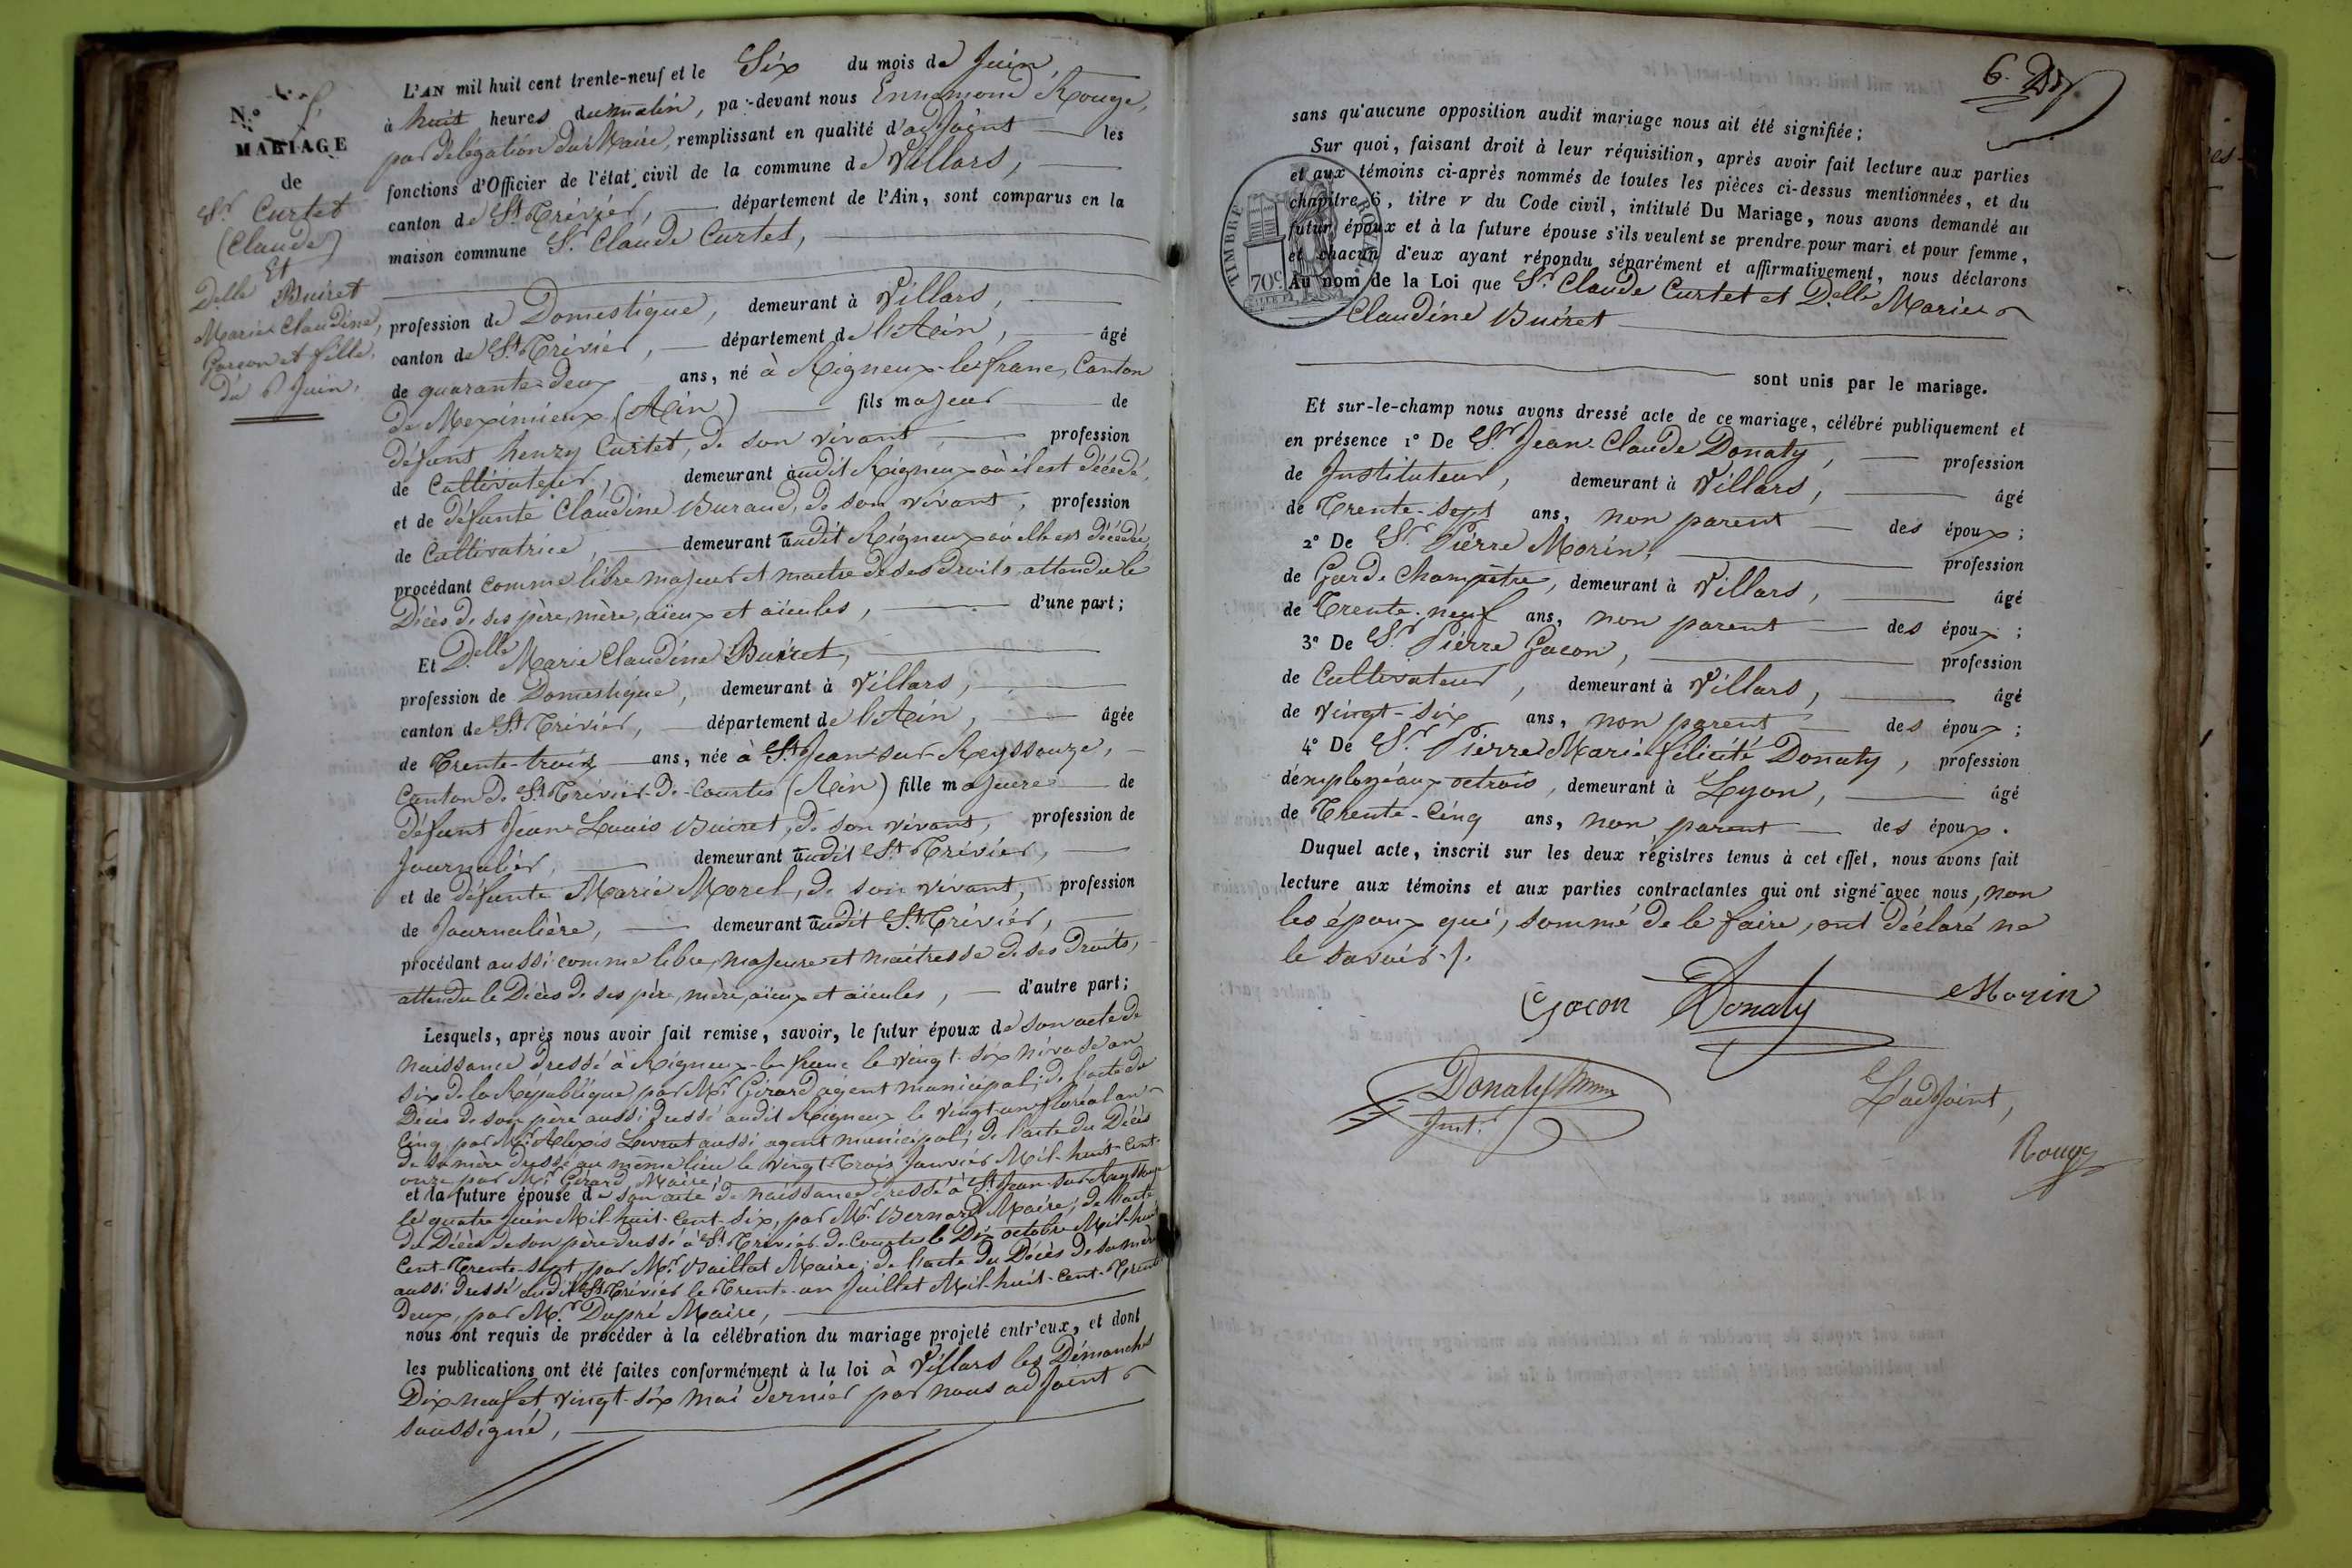 N.° 5.
MARIAGE
de
Sr. Curtet
(Claude)
Et
Delle Buiret
Marie Claudine,
Garçon et fille,
Du 6 Juin.
L'AN mil huit cent trente-neuf et le Six du mois de Juin,
à huit heures du matin, pa-devant nous Ennemond Rouge,
par délégation du Maire, remplissant en qualité d'adjoint les
fonctions d'Officier de l'état civil de la commune de Villars,
canton de St. Trivier, département de l'Ain, sont comparus en la
maison commune Sr. Claude Curtet,
profession de Domestique, demeurant à Villars,
canton de St. Trivier, département de l'Ain, âgé
de quarante-deux ans, né à Rigneux-le-franc, Canton
de Meximieux (Ain) fils majeur de
défunt henry Curtet, de son vivant profession
de Cultivateur, demeurant audit Rigneux où il est décédé,
et de défunte Claudine Buraud, de son vivant, profession
de Cultivatrice, demeurant audit Rigneux où elle est décédée,
procédant comme libre majeur et maitre de ses Droits attendu le
Décès de ses père, mère, aïeux et aïeules, d'une part;
Et Delle Marie Claudine Buiret,
profession de Domestique, demeurant à Villars,
canton de St. Trivier, département de l'Ain, âgée
de Trente-trois ans, née à St. Jean-sur-Reyssouze,
Canton de St. Trivier-de-Courtes (Ain) fille majeure de
défunt Jean-Louis Buiret, de son vivant, profession de
Journalier, demeurant audit St. Trivier,
et de défunte Marie Morel, de son vivant, profession
de Journalière, demeurant audit St. Trivier,
procédant aussi comme libre, majeure et maîtresse de ses Droits,
attendu le Décès de ses père, mère, aïeux et aïeules, d'autre part;
Lesquels, après nous avoir fait remise, savoir, le futur époux de son acte de
naissance dressé à Rigneux-le-franc le vingt-six nivose an
six de la République, par Mr. Girard agent municipal; de l'acte du
Décès de son père aussi dressé audit Rigneux le vingt-un floréal an
cinq, par Mr. Alexis Levrat aussi agent municipal; de l'acte du Décès
de sa mère dressé au même lieu le vingt-trois Janvier Mil-huit-cent-
onze par Mr. Girard, Maire;
et la future épouse de son acte de naissance dressé à St. Jean-sur-Reyssouze
le quatre Juin Mil-huit-cent-six, par Mr. Bernard Maire; de l'acte
du Décès de son père dressé à St. Trivier-de-Courtes le Dix octobre Mil-huit
Cent-Trente-sept, par Mr. Baillat Maire; de l'acte du Décès de sa mère
aussi dressé audit St. Trivier le Trente-un Juillet Mil-huit-Cent-Trente
Deux, par Mr. Dupré Maire,
nous ont requis de procéder à la célébration du mariage projeté entr'eux, et dont
les publications ont été faites conformément à la loi à Villars les Dimanches
Dix neuf et vingt-six mai dernier par nous adjoint
soussigné,
6.
sans qu'aucune opposition audit mariage nous ait été signifiée;
Sur quoi, faisant droit à leur réquisition, après avoir fait lecture aux parties
et aux témoins ci-après nommés de toutes les pièces ci-dessus mentionnées, et du
chapitre 6, titre v du Code civil, intitulé Du Mariage, nous avons demandé au
futur époux et à la future épouse s'ils veulent se prendre pour mari et pour femme,
et chacun d'eux ayant répondu séparément et affirmativement, nous déclarons
Au nom de la Loi que Sr. Claude Curtet et Delle Marie
Claudine Buiret
TIMBRE ROYAL
70c
sont unis par le mariage.
Et sur-le-champ nous avons dressé acte de ce mariage, célébré publiquement et
en présence 1° De Sr. Jean-Claude Donaty, profession
de Instituteur, demeurant à Villars, âgé
de Trente-sept ans, non parent des époux;
2° De Sr. Pierre Morin, profession
de Garde Champêtre, demeurant à Villars, âgé
de Trente-neuf ans, non parent des époux;
3° De Sr. Pierre Gacon, profession
de Cultivateur, demeurant à Villars, âgé
de vingt-six ans, non parent des époux;
4° De Sr. Pierre Marie félicité Donaty, profession
d'employé aux octrois, demeurant à Lyon, âgé
de Trente-Cinq ans, non parent des époux.
Duquel acte, inscrit sur les deux registres tenus à cet effet, nous avons fait
lecture aux témoins et aux parties contractantes qui ont signé avec nous, non
les époux qui, sommé de le faire, ont déclaré ne
le savoir./.
Gacon Donaty Morin
Donaty
Inst.r
L'adjoint,
Rouge